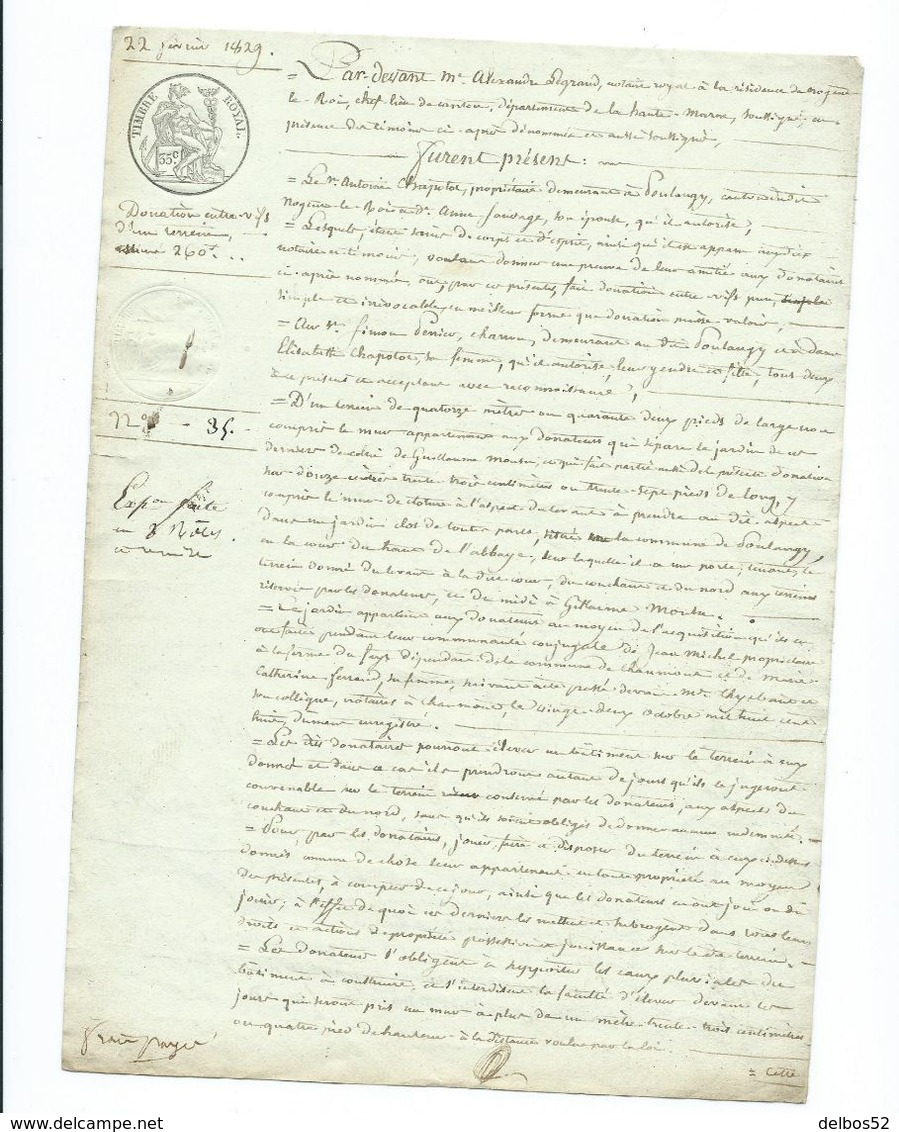 22 février 1829.
TIMBRE ROYAL.
35c
= Par-devant Me Alexandre Legrand, notaire royal à la résidence de Nogent
le-Roi, chef lieu de canton, département de la haute-Marne, soussigné, en
présence des témoins ci-après dénommés et aussi soussignés,
furent présent :
= Le Sr. Antoine Chapotot, propriétaire demeurant à Poulangy, canton dudit
Nogent-le-Roi et De. Anne Sauvage, son épouse, qu'il autorise ;
= Lesquels étant sains de corps et d'esprit, ainsi qu'il est apparu auxdits
notaire et témoins, voulant donner une preuve de leur amitié aux donataires
ci-après nommés, ont, par ces présentes, fait donation entre-vifs pure,
simple et irrévocable, en meilleure forme que donation puisse valoir,
= Au Sr. Simon Perrier, charron, demeurant au dit Poulangy et à dame
Elisabeth Chapotot, sa femme, qu'il autorise, leurs gendre et fille, tous deux
à ce présents et acceptant avec reconnaissance ;
= D'un terrein de quatorze mètres ou quarante deux pieds de large, non
compris le mur appartenant aux donateurs qui sépare le jardin de ces
derniers de celui de Guillaume Moutu, et qui fait partie aussi de la présente donation
sur douze mètres trente trois centimètres ou trente-sept pieds de long, y
compris le mur de cloture à l'aspect du levant, à prendre au dit aspect
dans un jardin clos de toutes parts, situé la commune de Poulangy,
en la cour du haut de l'abbaye, sur laquelle il a une porte ; tenant, le
terrein donné du levant à la dite cour, du couchant et du nord aux terreins
réservés par les donateurs, et du midi à Guillaume Moutu.
= Le jardin appartient aux donateurs au moyen de l'acquisition qu'ils en
ont faite pendant leur communauté conjugale de Jean Michel propriétaire
à la ferme du Fays dépendante de la commune de Chaumont et de Marie-
Catherine Ferrand, sa femme, suivant acte passé devant Me. Thyebaut et
son collègue, notaires à Chaumont, le vingt-deux octobre mil huit cent
huit, dument enregistré.
= Les dits donataires pourront élever un bâtiment sur le terrein à eux
donné et dans ce cas ils prendront autant de jours qu'ils le jugeront
convenable sur le terrein conservé par les donateurs, aux aspects du
couchant et du nord, sans qu'ils soient obligés de donner aucune indemnité.
= Pour, par les donataires, jouir, faire et disposer du terrein à eux ci-dessus
donnés comme de chose leur appartenant en toute propriété au moyen
des présentes, à compter de ce jour, ainsi que les donateurs en ont joui ou dû
jouir ; à l'effet de quoi ces derniers les mettent et subrogent dans tous leurs
droits et actions de propriété possession et jouissance sur le dit terrein.
= Les donateurs s'obligent à supporter les eaux pluviales du
bâtiment à construire, et s'interdisent la faculté d'élever devant les
jours qui seront pris un mur à plus de un mètre-trente-trois centimètres
ou quatre pied de hauteur à la distance voulue par la loi.
= Cette
Donation entre-vifs
d'un terrein,
estimé 260f...
No - 35.
Expon faite
en 3 Rôles
et remise
frais payés
delbos52